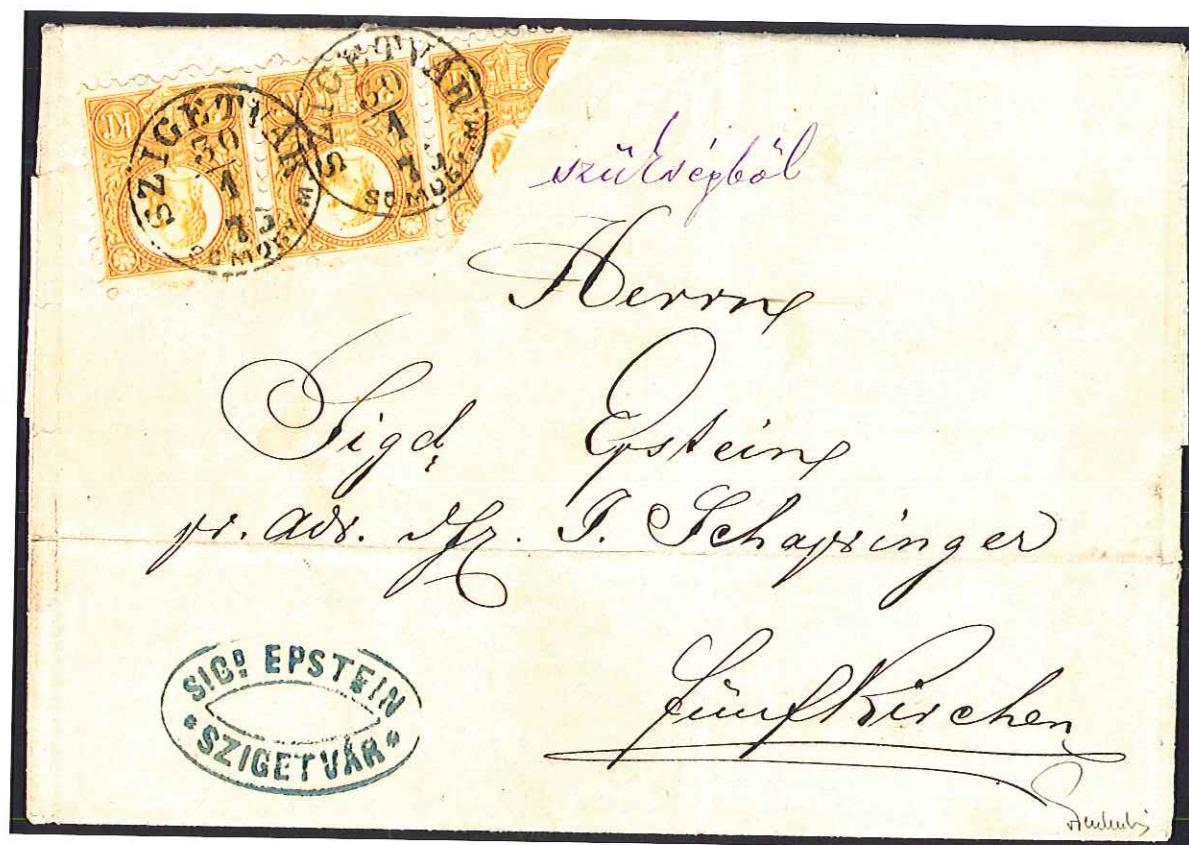 SZIGETVÁR
30
1
73
SOMOGY M
SZIGETVÁR
30
1
73
SOMOGY M
kr
szükségből
Herrn
Sigd Epstein
pr. adr. J. Schapringer
Fünfkirchen
SIGD EPSTEIN
*SZIGETVÁR*